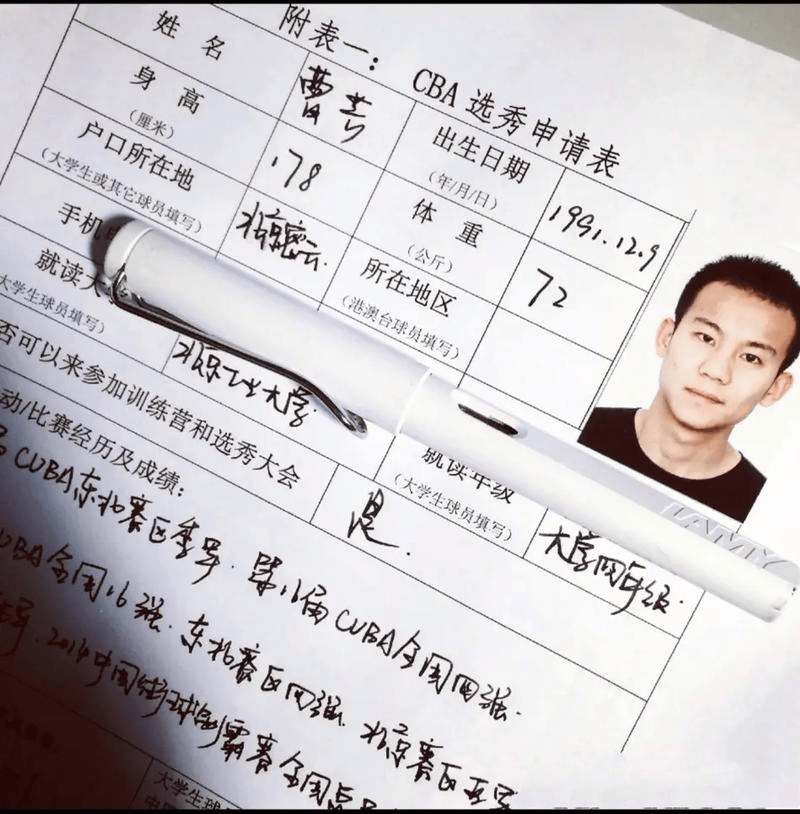 附表一: CBA选秀申请表
姓 名 曹芳 出生日期 (年/月/日) 1991.12.9
身 高 (厘米) 178 体 重 (公斤) 72
户口所在地 (大学生或其它球员填写) 北京密云 所在地区 (港澳台球员填写)
手机
就读大 大学生球员填写) 北京工业大学 就读年级 (大学生球员填写) 大学四年级.
否可以来参加训练营和选秀大会 是.
动/比赛经历及成绩:
CUBA东北赛区季军. 第16届CUBA全国四强.
UBA全国16强. 东北赛区四强. 北京赛区亚军
军. 2014中国街球争霸赛全国
大学生球
LAMY